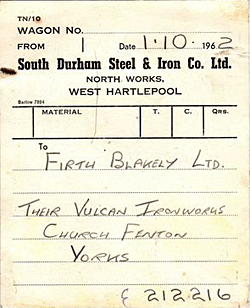 TN/10
WAGON No.
FROM 1 Date 1·10·1962
South Durham Steel & Iron Co. Ltd.
NORTH WORKS,
WEST HARTLEPOOL
Barlow 7894
MATERIAL T. C. Qrs.
To
FIRTH BLAKELY LTD.
THEIR VULCAN IRONWORKS
CHURCH FENTON
YORKS
212216